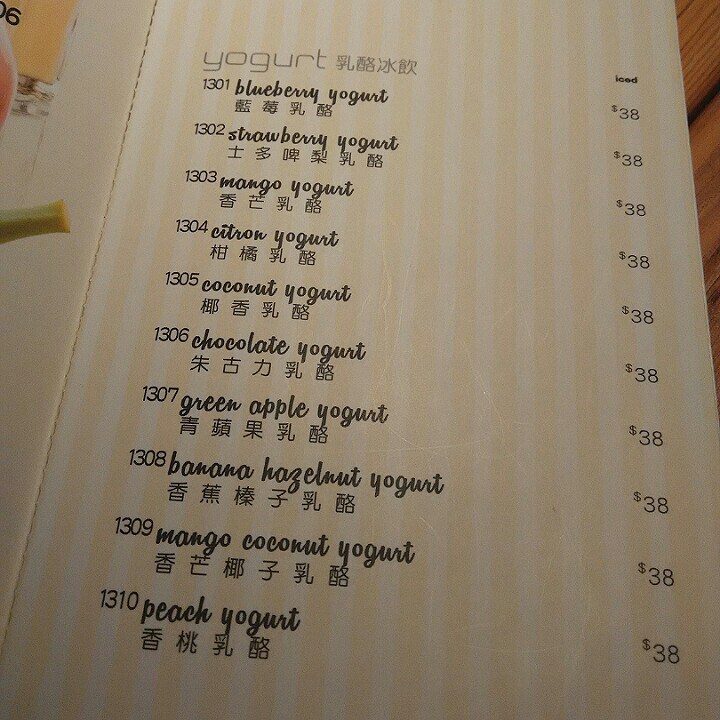 06
yogurt 乳酪冰飲
iced
1301 blueberry yogurt $38
藍莓乳酪
1302 strawberry yogurt $38
士多啤梨乳酪
1303 mango yogurt $38
香芒乳酪
1304 citron yogurt $38
柑橘乳酪
1305 coconut yogurt $38
椰香乳酪
1306 chocolate yogurt $38
朱古力乳酪
1307 green apple yogurt $38
青蘋果乳酪
1308 banana hazelnut yogurt $38
香蕉榛子乳酪
1309 mango coconut yogurt $38
香芒椰子乳酪
1310 peach yogurt $38
香桃乳酪